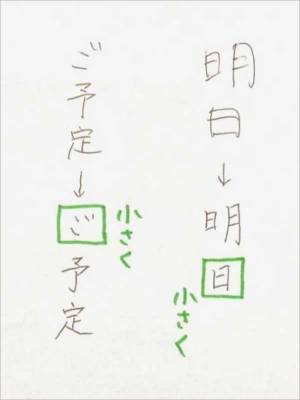 明日→明日
小さく
ご予定→ご予定
小さく